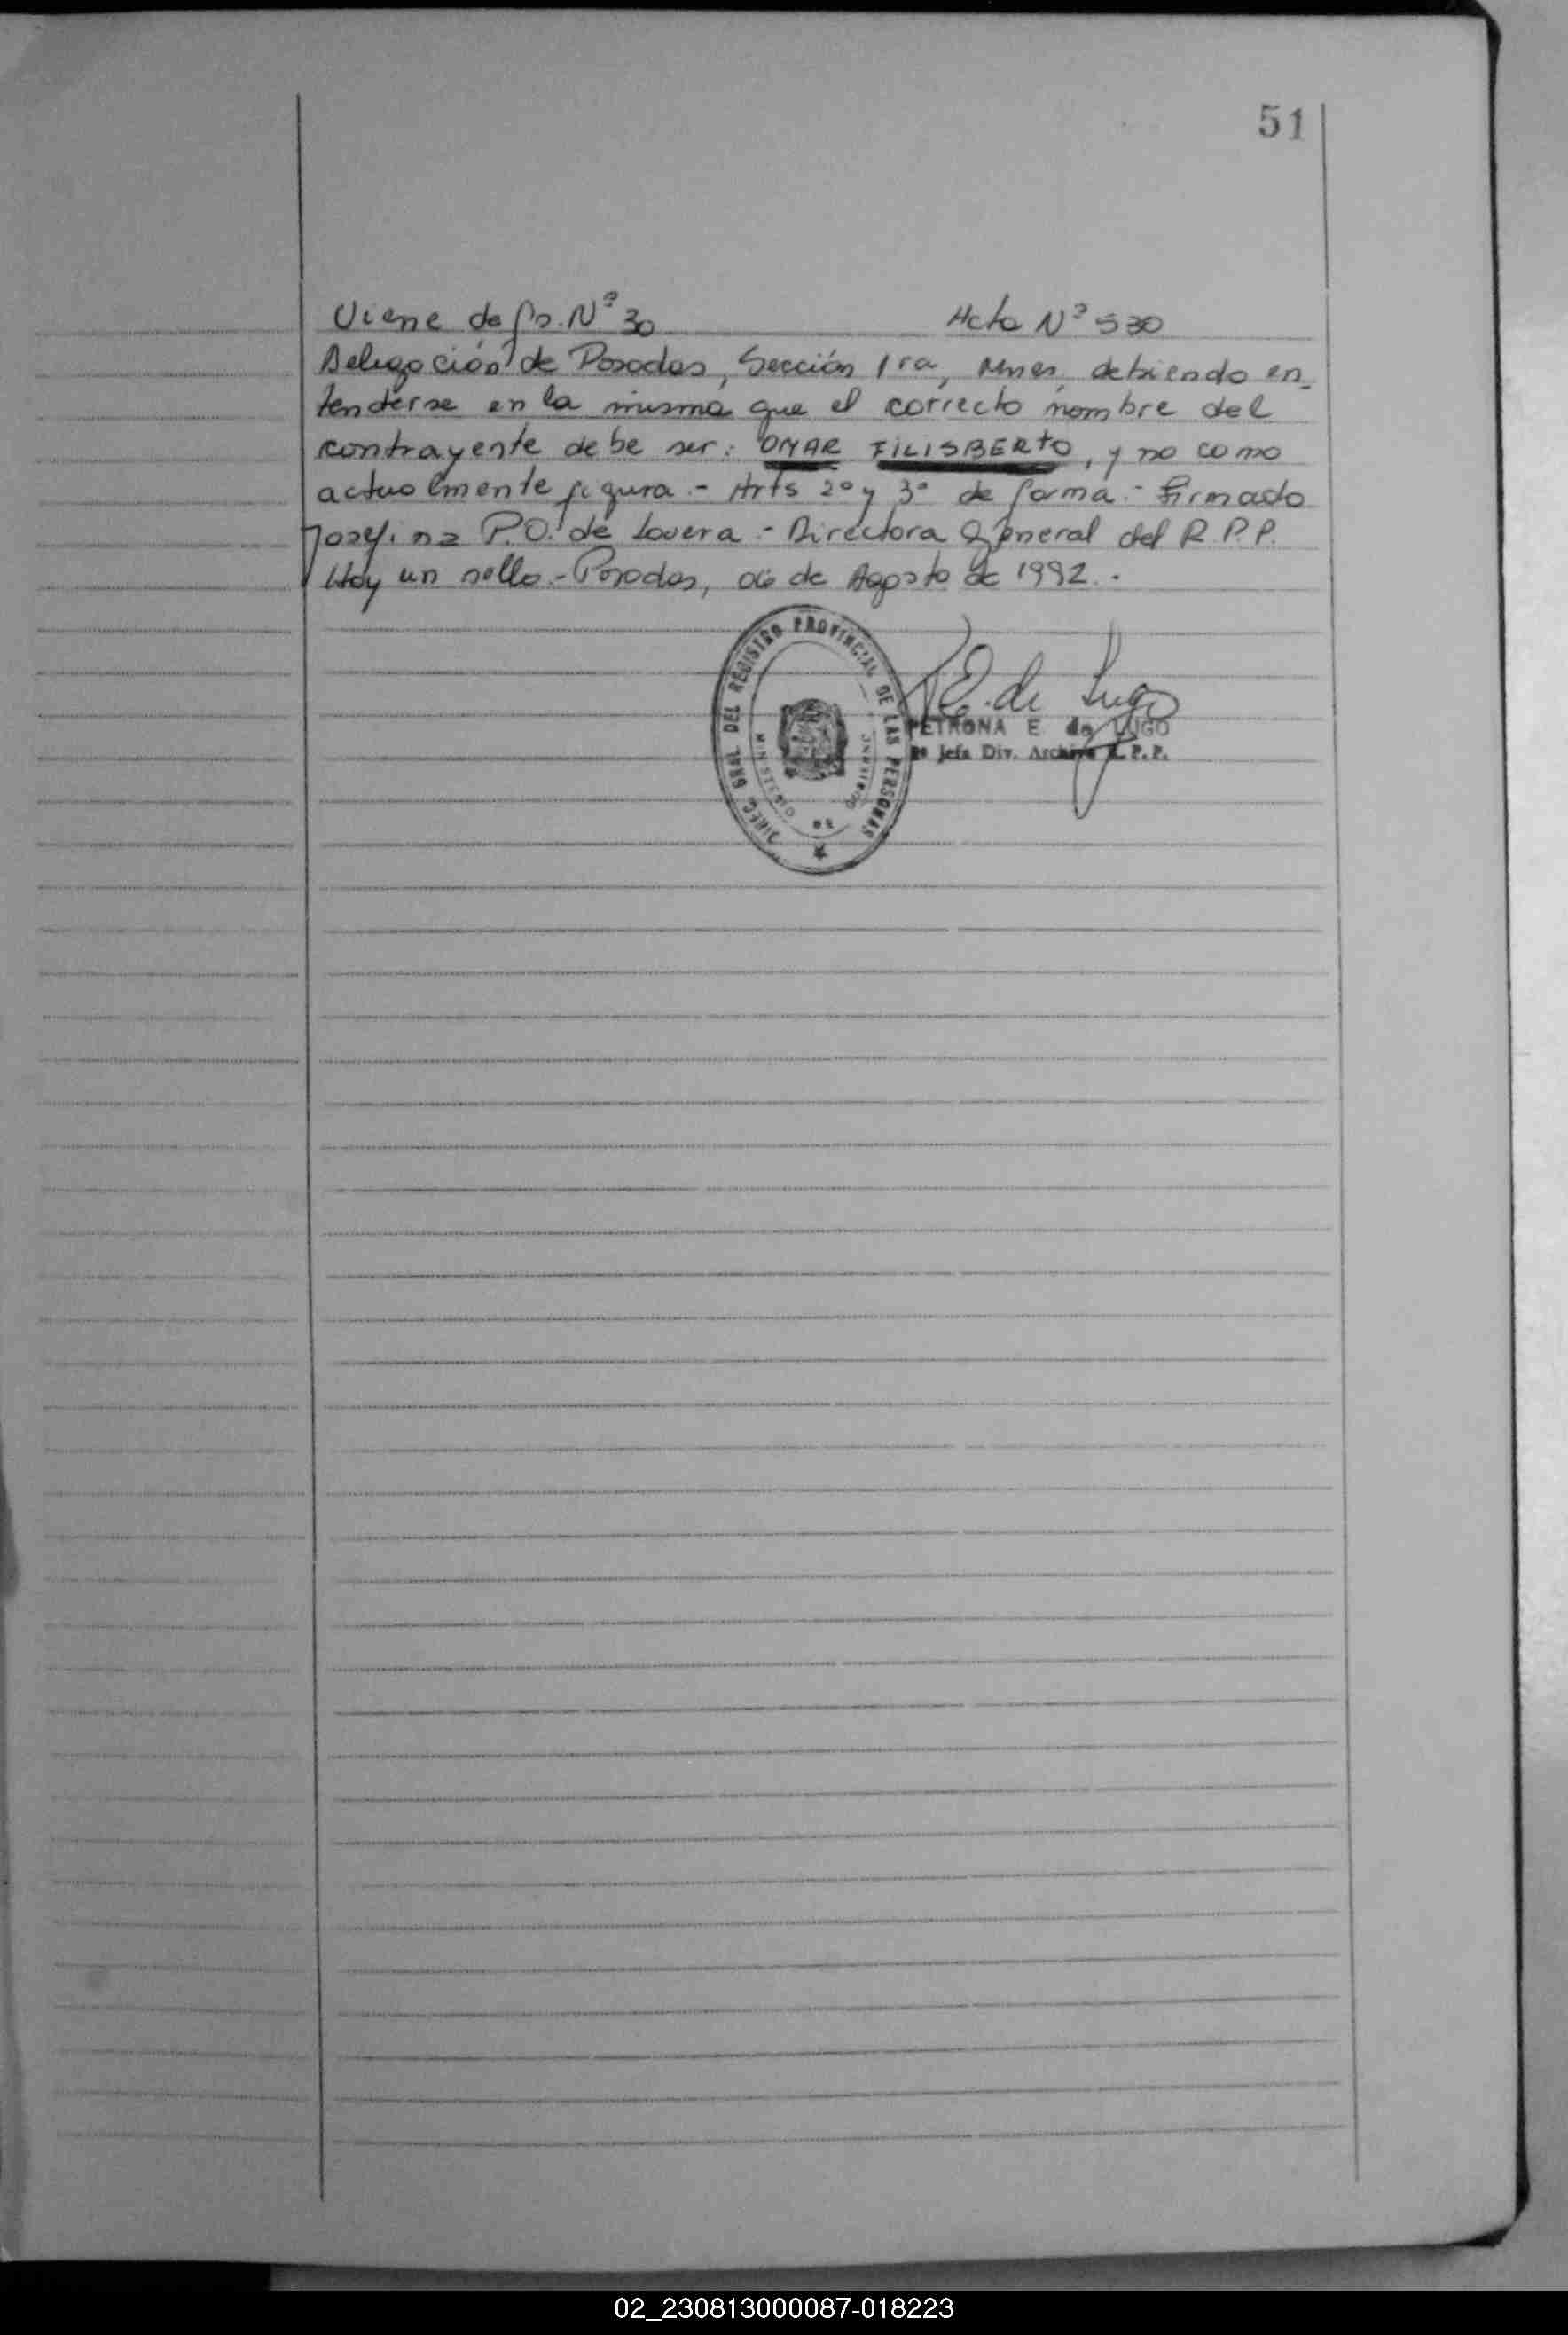 51
Viene de fs. Nº 30 Acta Nº 530
Delegación de Posadas, Sección 1ra, Mnes, debiendo en_
tenderse en la misma que el correcto nombre del
contrayente debe ser: OMAR FILISBERTO, y no como
actualmente figura.- Arts 2º y 3º de forma.- Firmado
Josefina P.O. de Lovera.- Directora General del R.P.P.
Hay un sello.- Posadas, 06 de Agosto de 1992.-
DIREC. GRAL. DEL REGISTRO PROVINCIAL DE LAS PERSONAS
MINISTERIO DE GOBIERNO
P.E. de Lugo
PETRONA E. de LUGO
Jefa Div. Archivo R.P.P.
02_230813000087-018223